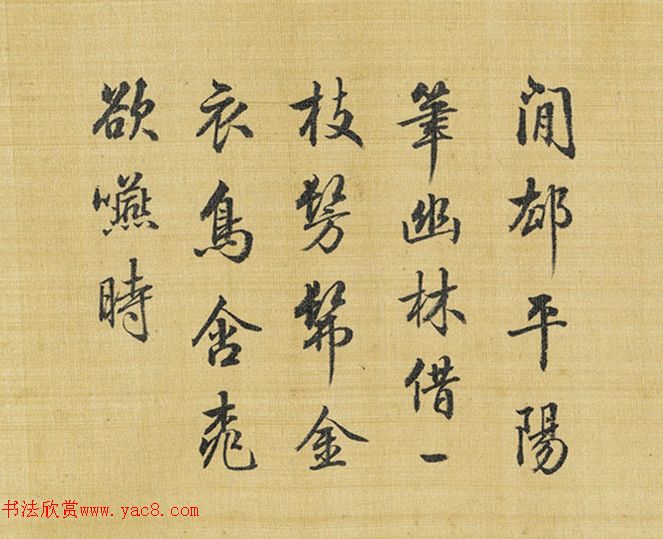 閒却平陽
筆幽林借一
枝髣髴金
衣鳥含
欲嚥時
书法欣赏www.yac8.com